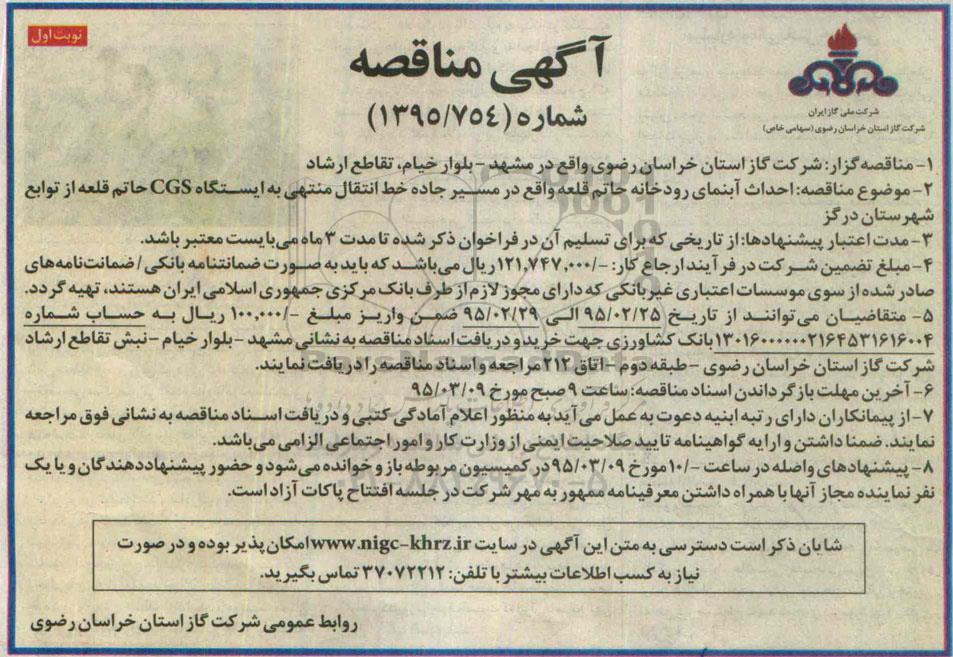 نوبت اول
آگهی مناقصه
شماره (۱۳۹۵/۷۵٤)
شرکت ملی گاز ایران
شرکت گاز استان خراسان رضوی (سهامی خاص)
۱- مناقصه گزار: شرکت گاز استان خراسان رضوی واقع در مشهد - بلوار خیام، تقاطع ارشاد
۲- موضوع مناقصه: احداث آبنمای رودخانه حاتم قلعه واقع در مسیر جاده خط انتقال منتهی به ایستگاه CGS حاتم قلعه از توابع
شهرستان درگز
۳- مدت اعتبار پیشنهادها: از تاریخی که برای تسلیم آن در فراخوان ذکر شده تا مدت ۳ ماه می‌بایست معتبر باشد.
۴- مبلغ تضمین شرکت در فرآیند ارجاع کار: -/۱۲۱,۷۴۷,۰۰۰ ریال می‌باشد که باید به صورت ضمانتنامه بانکی / ضمانت‌نامه‌های
صادر شده از سوی موسسات اعتباری غیربانکی که دارای مجوز لازم از طرف بانک مرکزی جمهوری اسلامی ایران هستند، تهیه گردد.
۵- متقاضیان می‌توانند از تاریخ ۹۵/۰۲/۲۵ الی ۹۵/۰۲/۲۹ ضمن واریز مبلغ -/۱۰۰,۰۰۰ ریال به حساب شماره
۱۳۰۱۶۰۰۰۰۰۰۲۱۶۴۵۳۱۶۱۶۰۰۴ بانک کشاورزی جهت خرید و دریافت اسناد مناقصه به نشانی مشهد - بلوار خیام - نبش تقاطع ارشاد
شرکت گاز استان خراسان رضوی - طبقه دوم - اتاق ۲۱۲ مراجعه و اسناد مناقصه را دریافت نمایند.
۶- آخرین مهلت بازگرداندن اسناد مناقصه: ساعت ۹ صبح مورخ ۹۵/۰۳/۰۹
۷- از پیمانکاران دارای رتبه ابنیه دعوت به عمل می‌آید به منظور اعلام آمادگی کتبی و دریافت اسناد مناقصه به نشانی فوق مراجعه
نمایند. ضمنا داشتن و ارایه گواهینامه تایید صلاحیت ایمنی از وزارت کار و امور اجتماعی الزامی می‌باشد.
۸- پیشنهادهای واصله در ساعت -/۱۰ مورخ ۹۵/۰۳/۰۹ در کمیسیون مربوطه باز و خوانده می‌شود و حضور پیشنهاددهندگان و یا یک
نفر نماینده مجاز آنها با همراه داشتن معرفینامه ممهور به مهر شرکت در جلسه افتتاح پاکات آزاد است.
شایان ذکر است دسترسی به متن این آگهی در سایت www.nigc-khrz.ir امکان پذیر بوده و در صورت
نیاز به کسب اطلاعات بیشتر با تلفن: ۳۷۰۷۲۲۱۲ تماس بگیرید.
روابط عمومی شرکت گاز استان خراسان رضوی